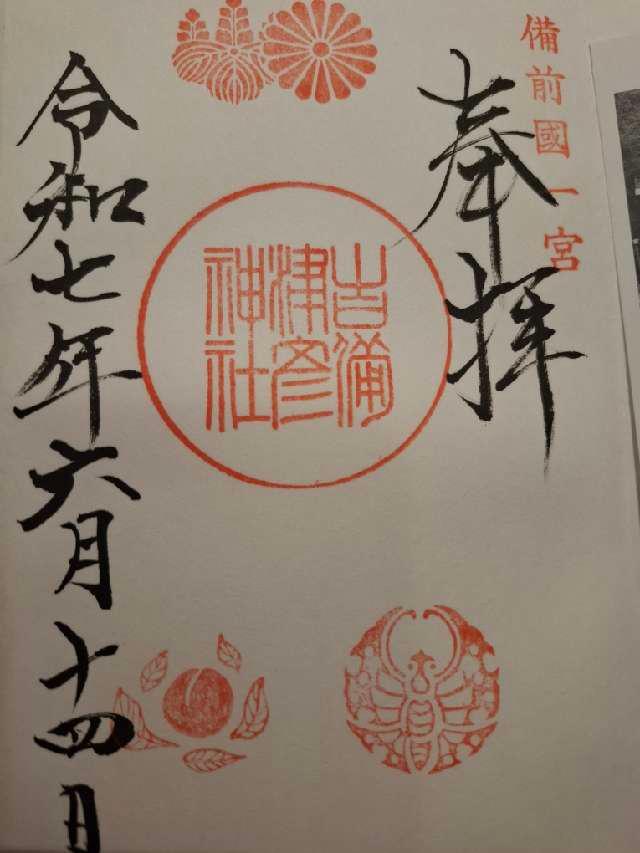 備前國一宮
奉拝
吉備
津彦
神社
令和七年六月十四日